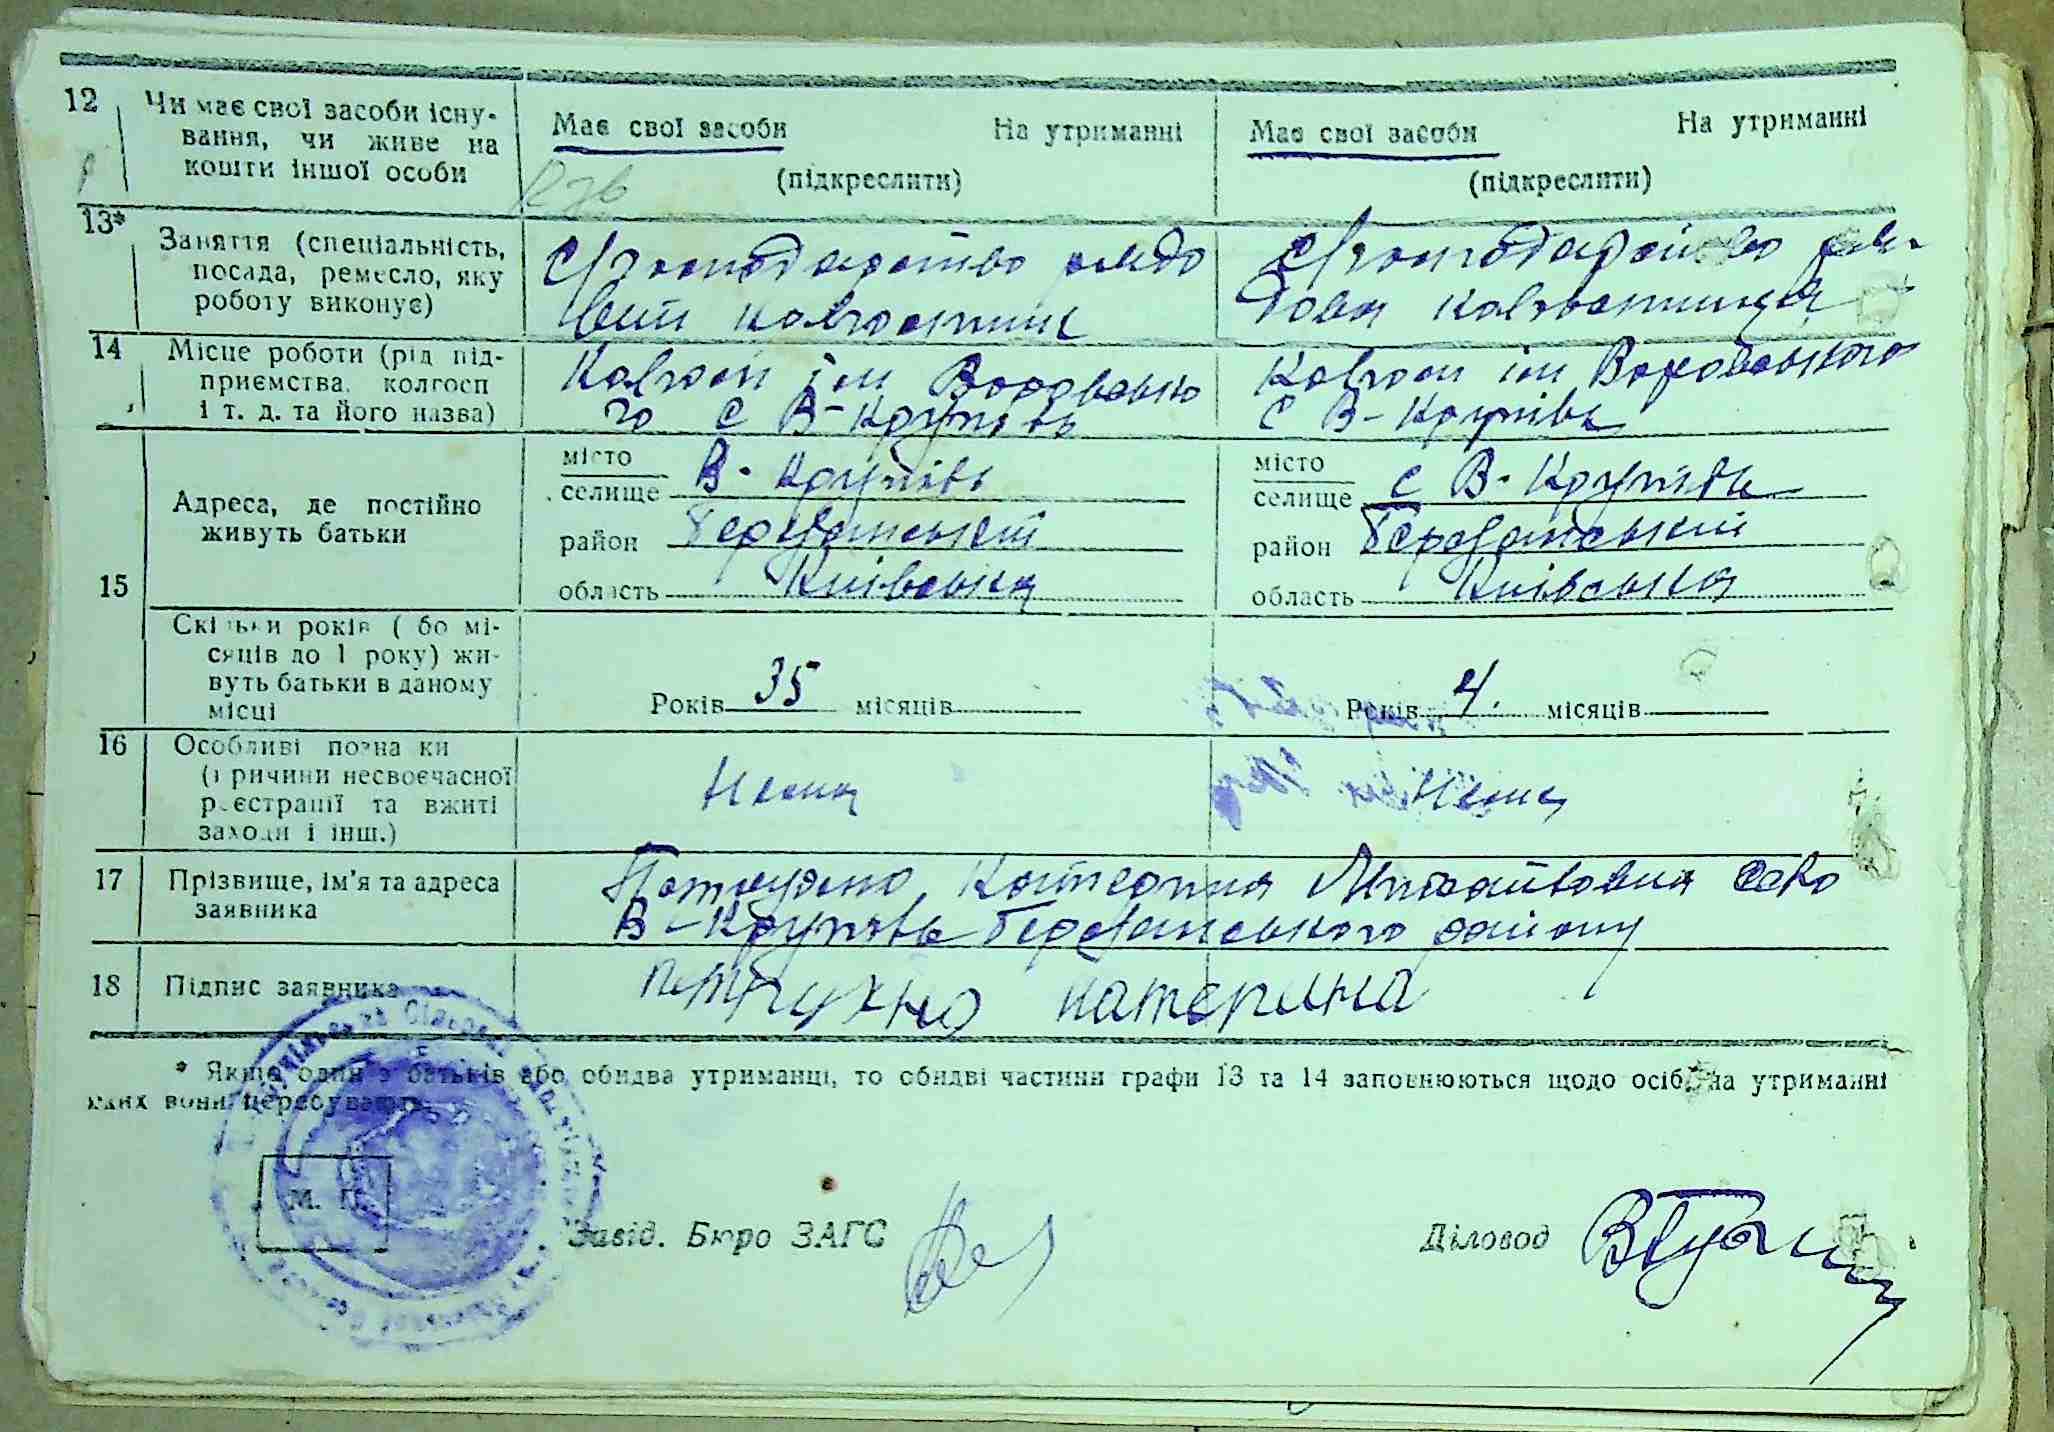 12 Чи має свої засоби існу-
вання, чи живе на
кошти іншої особи
Має свої засоби На утриманні
(підкреслити)
Має свої засоби На утриманні
(підкреслити)
13* Заняття (спеціальність,
посада, ремесло, яку
роботу виконує)
с/господарство рядо
вий колгоспник
с/господарство ря-
дова колгоспниця
14 Місце роботи (рід під-
приємства, колгосп
і т. д. та його назва)
Колгосп ім Воровсько
го с В-Крупіль
Колгосп ім Воровського
с В-Крупіль
15 Адреса, де постійно
живуть батьки
місто
селище В-Крупіль
район Березанський
область Київська
місто
селище с В-Крупіль
район Березанський
область Київська
Скільки років (або мі-
сяців до 1 року) жи-
вуть батьки в даному
місці
Років 35 місяців
Років 4. місяців
16 Особливі позначки
(причини несвоєчасної
реєстрації та вжиті
заходи і інш.)
Нема
Нема
17 Прізвище, ім'я та адреса
заявника
Катерина Михайловна село
В-Крупіль Березанського району
18 Підпис заявника
Петрухно катерина
* Якщо один з батьків або обидва утриманці, то обидві частини графи 13 та 14 заповнюються щодо осіб, на утриманні
яких вони перебувають.
М. П.
Завід. Бюро ЗАГС
Діловод